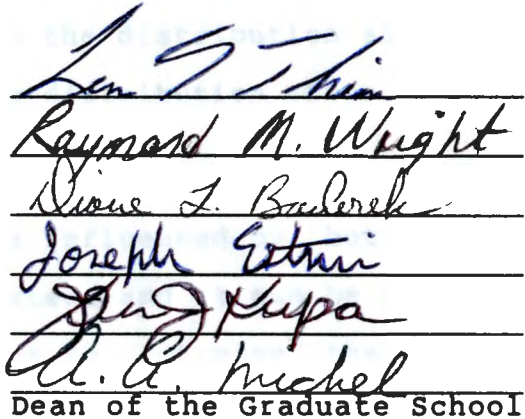 Len T Thim
Raymond M. Wright
Diane L.
Joseph Estrin
J Kupa
A. A. Michel
Dean of the Graduate School